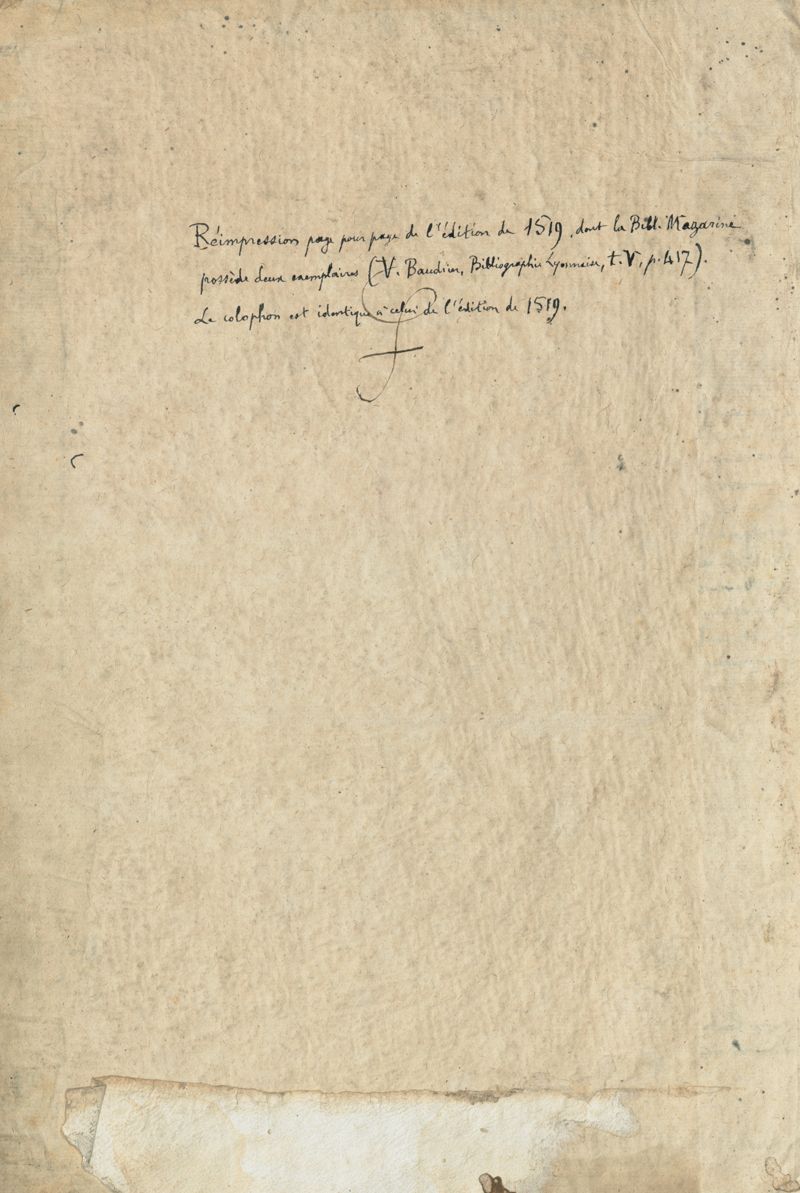 Réimpression page pour page de l'édition de 1519, dont la Bibl. Mazarine
possède deux exemplaires (V. Baudrier, Bibliographie Lyonnaise, t. V, p. 417).
Le colophon est identique à celui de l'édition de 1519.